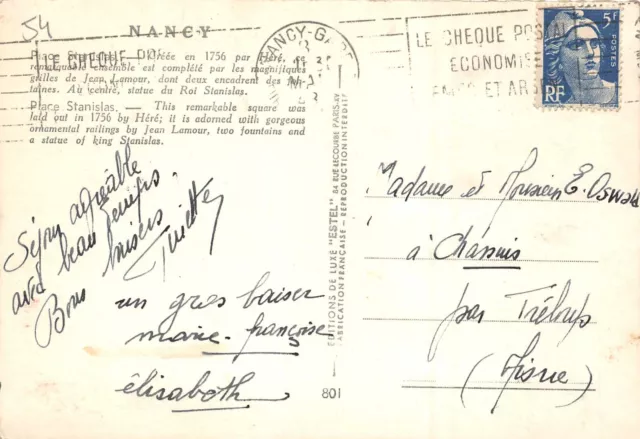 54
NANCY
Place Stanislas. — Créée en 1756 par Héré,
remarquable ensemble est complété par les magnifiques
grilles de Jean Lamour, dont deux encadrent des fon-
taines. Au centre, statue du Roi Stanislas.
Place Stanislas. — This remarkable square was
laid out in 1756 by Héré; it is adorned with gorgeous
ornamental railings by Jean Lamour, two fountains and
a statue of king Stanislas.
LE CHEQUE
NANCY-GARE
LE CHEQUE POSTAL
ECONOMISE
TEMPS ET ARGENT
5F
POSTES
RF
Séjour agréable
avec beau temps.
Bons baisers
un gros baiser
marie-françoise
élisabeth
EDITIONS DE LUXE "ESTEL" 84 RUE LECOURBE PARIS-XV
FABRICATION FRANÇAISE - REPRODUCTION INTERDITE
801
Madame et Monsieur E. Oswald
à Chassins
par Tréloup
(Aisne)